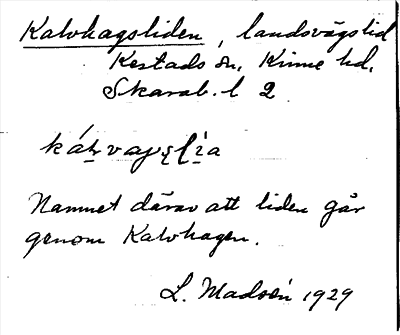 Kalvhagsliden, landsvägslid
Kestads sn. Kinne hd.
Skarab. l 2
Namnet därav att liden går
genom Kalvhagen.
L. Madsén 1929